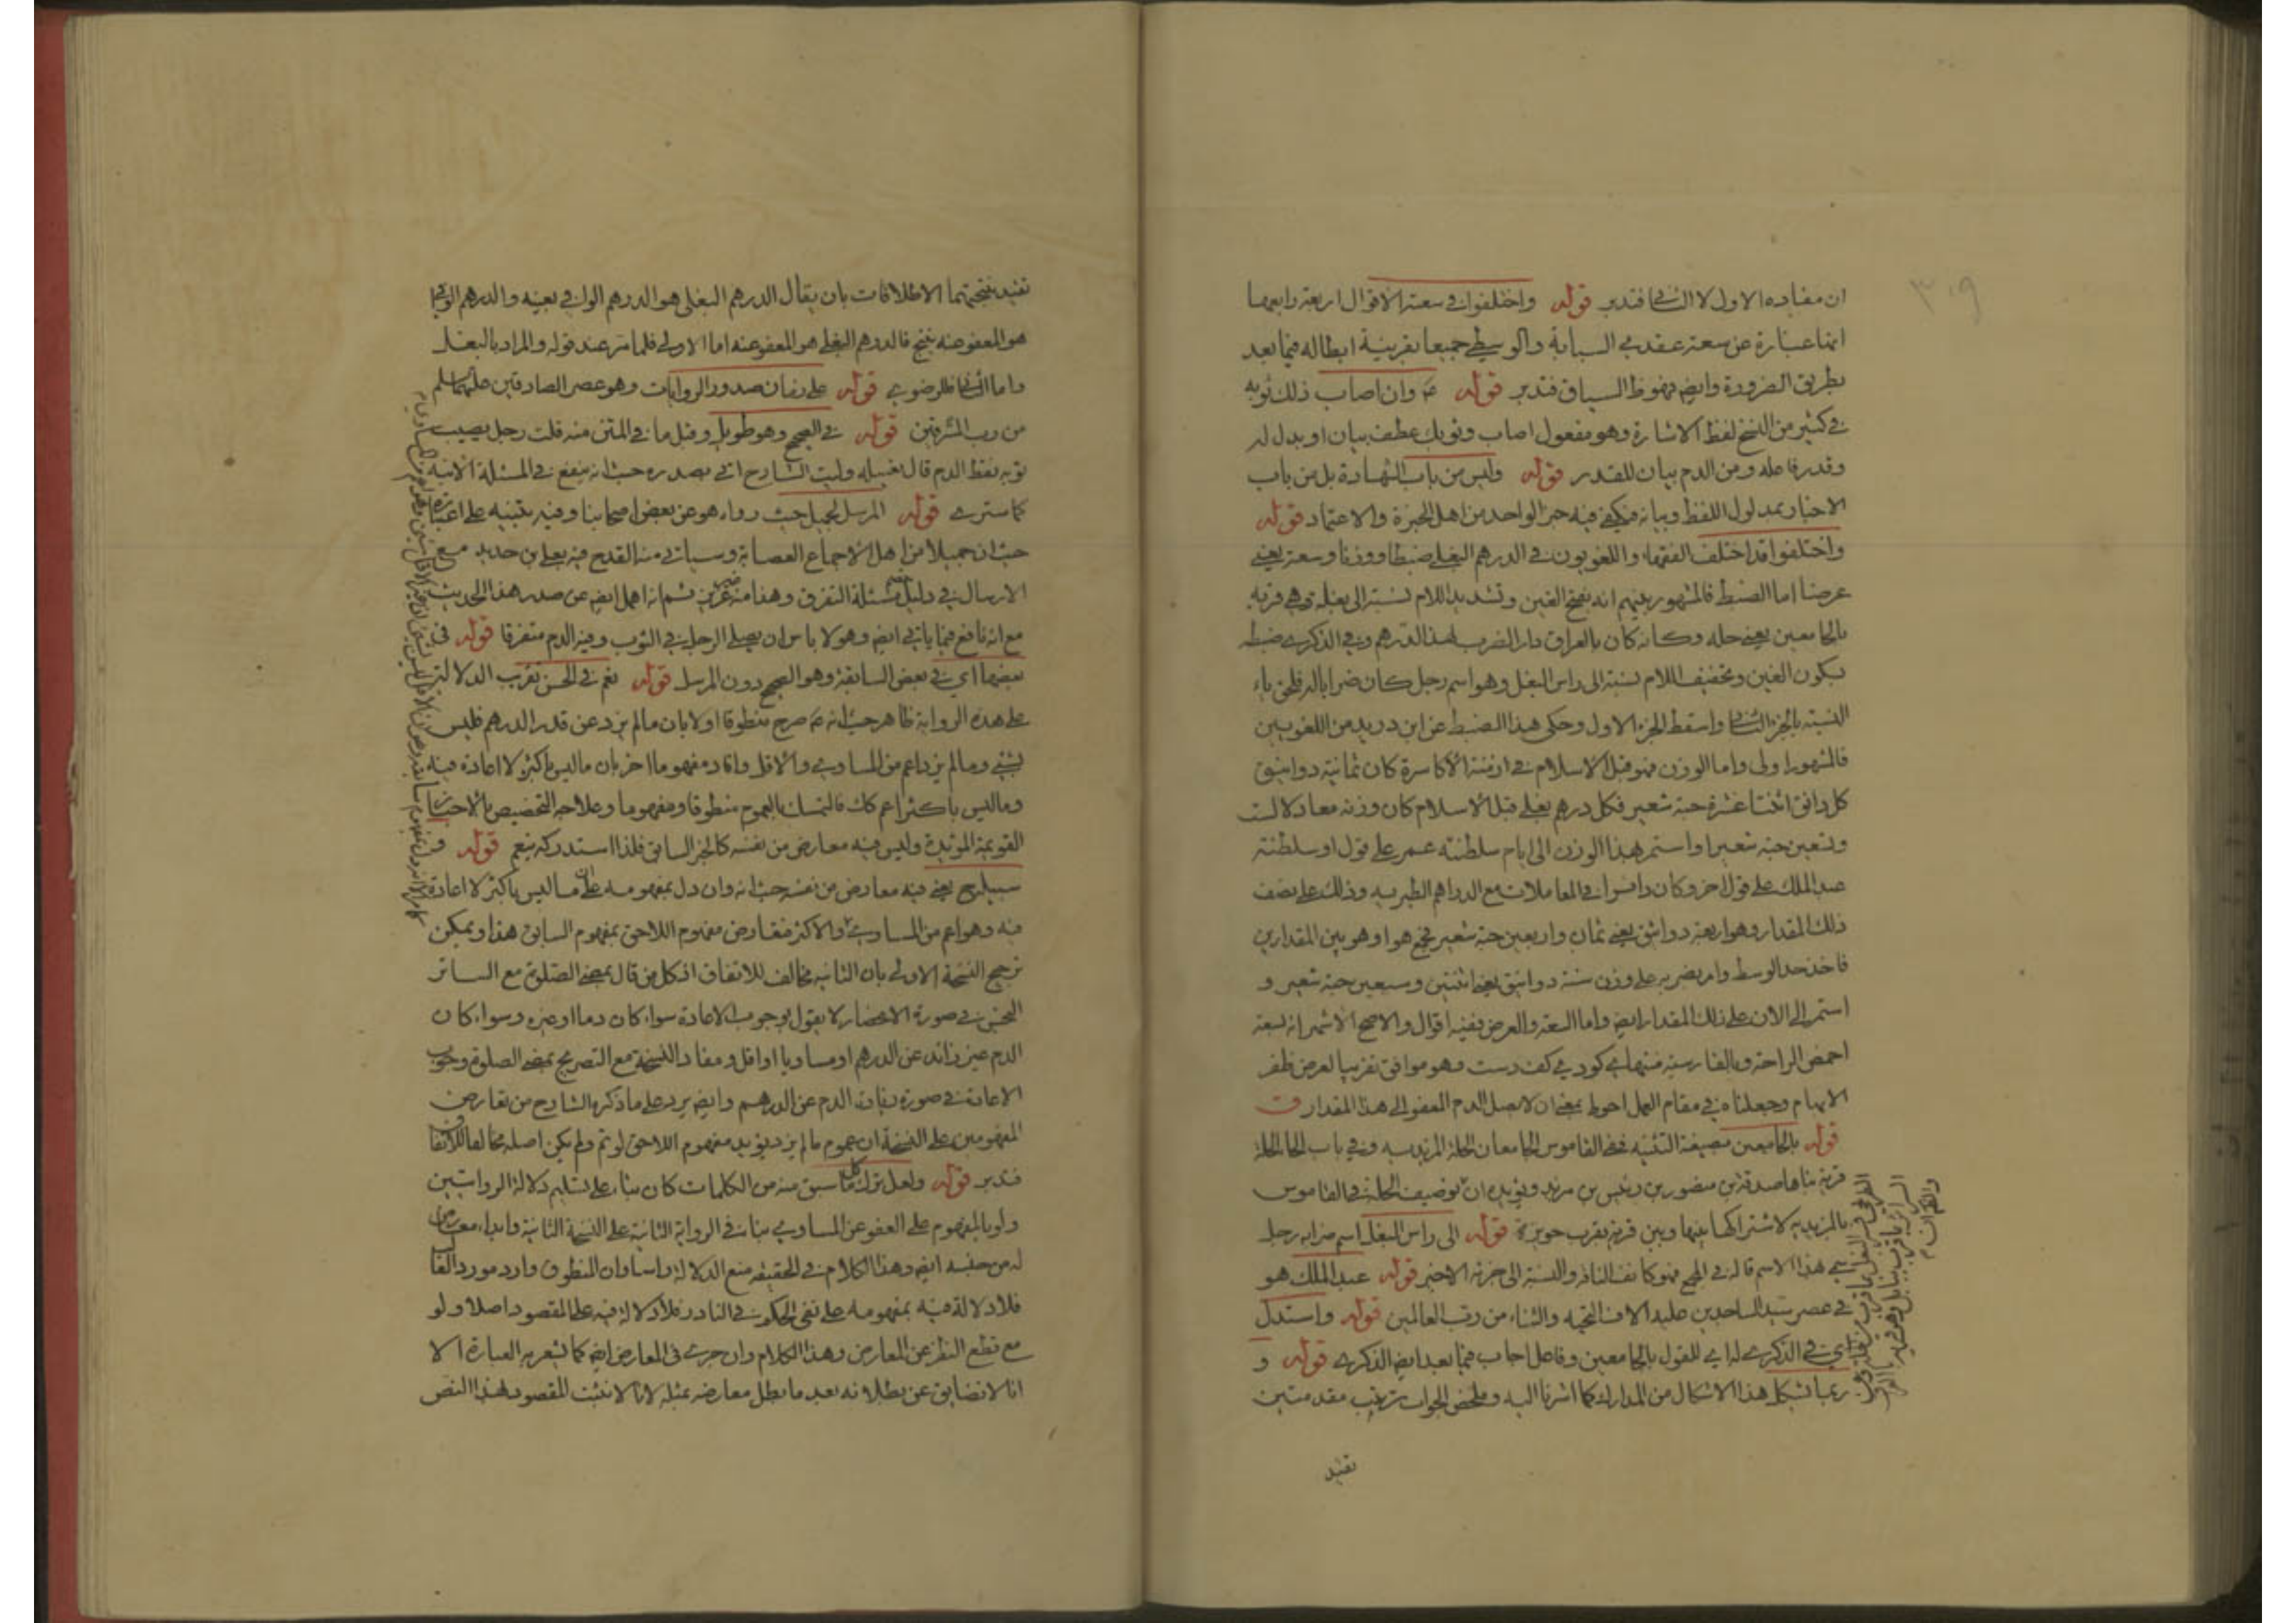 ٣٠٩
ان مفاده الاول لا الثاني فتدبر قوله واختلفوا في سعته الاقوال اربعة رابعها
انها عبارة عن سعة عقدي السبابة والوسطى جميعا بقرينة ابطاله فيما بعد
بطريق الضرورة وايضه السياق فتدبر قوله وان اصاب ذلك ثوبه
في كثير من النسخ لفظ الاشارة وهو مفعول اصاب وثوبك عطف بيان او بدل له
وقدر فاعله ومن الدم بيان للقدر قوله وليس من باب الشهادة بل من باب
الاخبار بمدلول اللفظ وبيانه فيكفي فيه خبر الواحد من اهل الخبرة والاعتماد قوله
واختلفوا قد اختلف الفقهاء واللغويون في الدرهم البغلي ضبطا ووزنا وسعة يعني
عرضا اما الضبط فالمشهور بينهم انه بفتح الغين وتشديد اللام نسبة الى بغلة هي قرية
بالجامعين يعني حله وكانه كان بالعراق دار الضرب لهذا الدرهم وفي الذكرى ضبطه
بسكون الغين وتخفيف اللام نسبة الى راس البغل وهو اسم رجل كان ضرابا له فلحق ياء
النسبة بالجزء الثاني واسقط الجزء الاول وحكى هذا الضبط عن ابن دريد من اللغويين
فالمشهور اولى واما الوزن فهو قبل الاسلام في ازمنة الاكاسرة كان ثمانية دوانيق
كل دانق اثنتا عشرة حبة شعير فكل درهم بغلي قبل الاسلام كان وزنه معادلا لست
وتسعين حبة شعير واستمر هذا الوزن الى ايام سلطنته عمر على قول او سلطنة
عبد الملك على قول اخر وكان في المعاملات مع الدراهم الطبريه وذلك على نصف
ذلك المقدار وهو اربعة دوانق يعني ثمان واربعين حبة شعير فجمع هو او هو بين المقدارين
فاخذ حد الوسط وامر بضربه على وزن ستة دوانيق يعني اثنتين وسبعين حبة شعير و
استمر الى الان على ذلك المقدار ايضه واما السعة والعرض ففيه اقوال والاصح الاشهر انه لسعة
اخمص الراحة وبالفارسية كودي كف دست وهو موافق تقريبا لعرض ظفر
الابهام وجعلناه في مقام العمل احوط بمعنى ان لا يصل الدم المعفو الى هذا المقدار
قوله بالجامعين بصيغة التثنيه ففي القاموس الجامعان الحلة المزيديه وفي باب الحاء الحلة
قرية بناها صدقة بن منصور بن دبيس بن مزيد ويؤيده ان توصيف الحلة في القاموس
بالمزيديه لاشتراكها بينها وبين قرية بقرب حويزة قوله الى راس البغل اسم ضرابه رجل
سمي هذا الاسم قاله في المجمع فهو كانف الناقة والنسبة الى جزئه الاخير قوله عبد الملك هو
في عصر سيد الساجدين عليه الاف التحيه والثناء من رب العالمين قوله واستدل
اي في الذكرى له اي للقول بالجامعين وفاعل اجاب فيما بعد ايضه الذكرى قوله و
ربما يشكل هذا الاشكال من المدارك كما اشرنا اليه وملخص الجواب ترتيب مقدمتين
تفيد
تفيد نتيجتهما الاطلاقات بان يقال الدرهم البغلي هو الدرهم الوافي بعينه والدرهم الوافي
هو المعفو عنه ينتج فالدرهم البغلي هو المعفو عنه اما الاولى فلما مر عند قوله والمراد بالبغلي
واما الثانية فللرضوي قوله على زمان صدور الروايات وهو عصر الصادقين عليهما سلام
من رب المشرقين قوله في الصحيح وهو طويل وقبل ما في المتن منه قلت رجل يصيب
ثوبه نقط الدم قال يغسله وليت الشارح اتى بصدره حيث انه ينفع في المسئلة الاتية
كما سترى قوله المرسل لجميل حيث رواه هو عن بعض اصحابنا وفيه تنبيه على اعتباره
حيث ان جميلا من اهل الاجماع العصابة وسياتي منه القدح فيه
الارسال في دليل مسئلة التفرق وهذا منه غريب ثم انه اهمل ايضه عن صدر هذا الحديث
مع انه نافع فيما ياتي ايضه وهو لا باس ان يصلي الرجل في الثوب وفيه الدم متفرقا قوله في
بعضها اي في بعض السابقة وهو الصحيح دون المرسل قوله نعم في الحسن تقريب الدلالة
على هذه الرواية ظاهر حيث انه صرح منطوقا اولا بان ما لم يزد عن قدر الدرهم فليس
بشيء وما لم يزد اعم من المساوي والاقل وافاد مفهوما اخر بان ما ليس باكثر لا اعادة فيه
وما ليس باكثر اعم كك فالتمسك بالعموم منطوقا ومفهوما وعلاجه التخصيص بالاخبار
القويمة المؤيدة وليس فيه معارض من نفسه كالخبر السابق فلذا استدركه بنعم قوله و
سبيله يعني فيه معارض من نفسه حيث انه وان دل بمفهومه على ان ما ليس باكثر لا اعادة
فيه وهو اعم من المساوي والاكثر فتعارض مفهوم اللاحق بمفهوم السابق هذا ويمكن
ترجيح النسخة الاولى بان الثانية مخالف للاتفاق اذ كل من قال بمضي الصلوة مع الساتر
النجس في صورة الانحصار لا يقول بوجوب الاعادة سواء كان دما او غيره وسواء كان
الدم حين زائد عن الدرهم او مساويا او اقل ومفاد النسخة مع التصريح بمضي الصلوة وجوب
الاعادة في صورة زيادة الدم عن الدرهم وايضه يرد على ما ذكره الشارح من تعارض
المفهومين على النسخة ان عموم ما لم يزد يؤيد مفهوم اللاحق لو تم ولم يكن اصله مخالفا للاتفاق
فتدبر قوله ولعل ترك كل ما سبق منه من الكلمات كان بناء على تسليم دلالة الروايتين
ولو بالمفهوم على العفو عن المساوي بناء في الرواية الثانية على النسخة الثانية وابداء معارض
له من جنسه ايضه وهذا الكلام في الحقيقة منع الدلالة راسا وان المنطوق وارد مورد الغالب
فلا دلالة فيه بمفهومه على نفي الحكم في النادر فلا دلالة فيه على المقصود اصلا ولو
مع قطع النظر عن المعارض وهذا الكلام وان جرى في المعارض ايضه كما يشعر به العبارة الا
انا لا نضايق عن بطلانه بعد ما بطل معارضه بمثله لانا لا نثبت المقصود بهذا النص